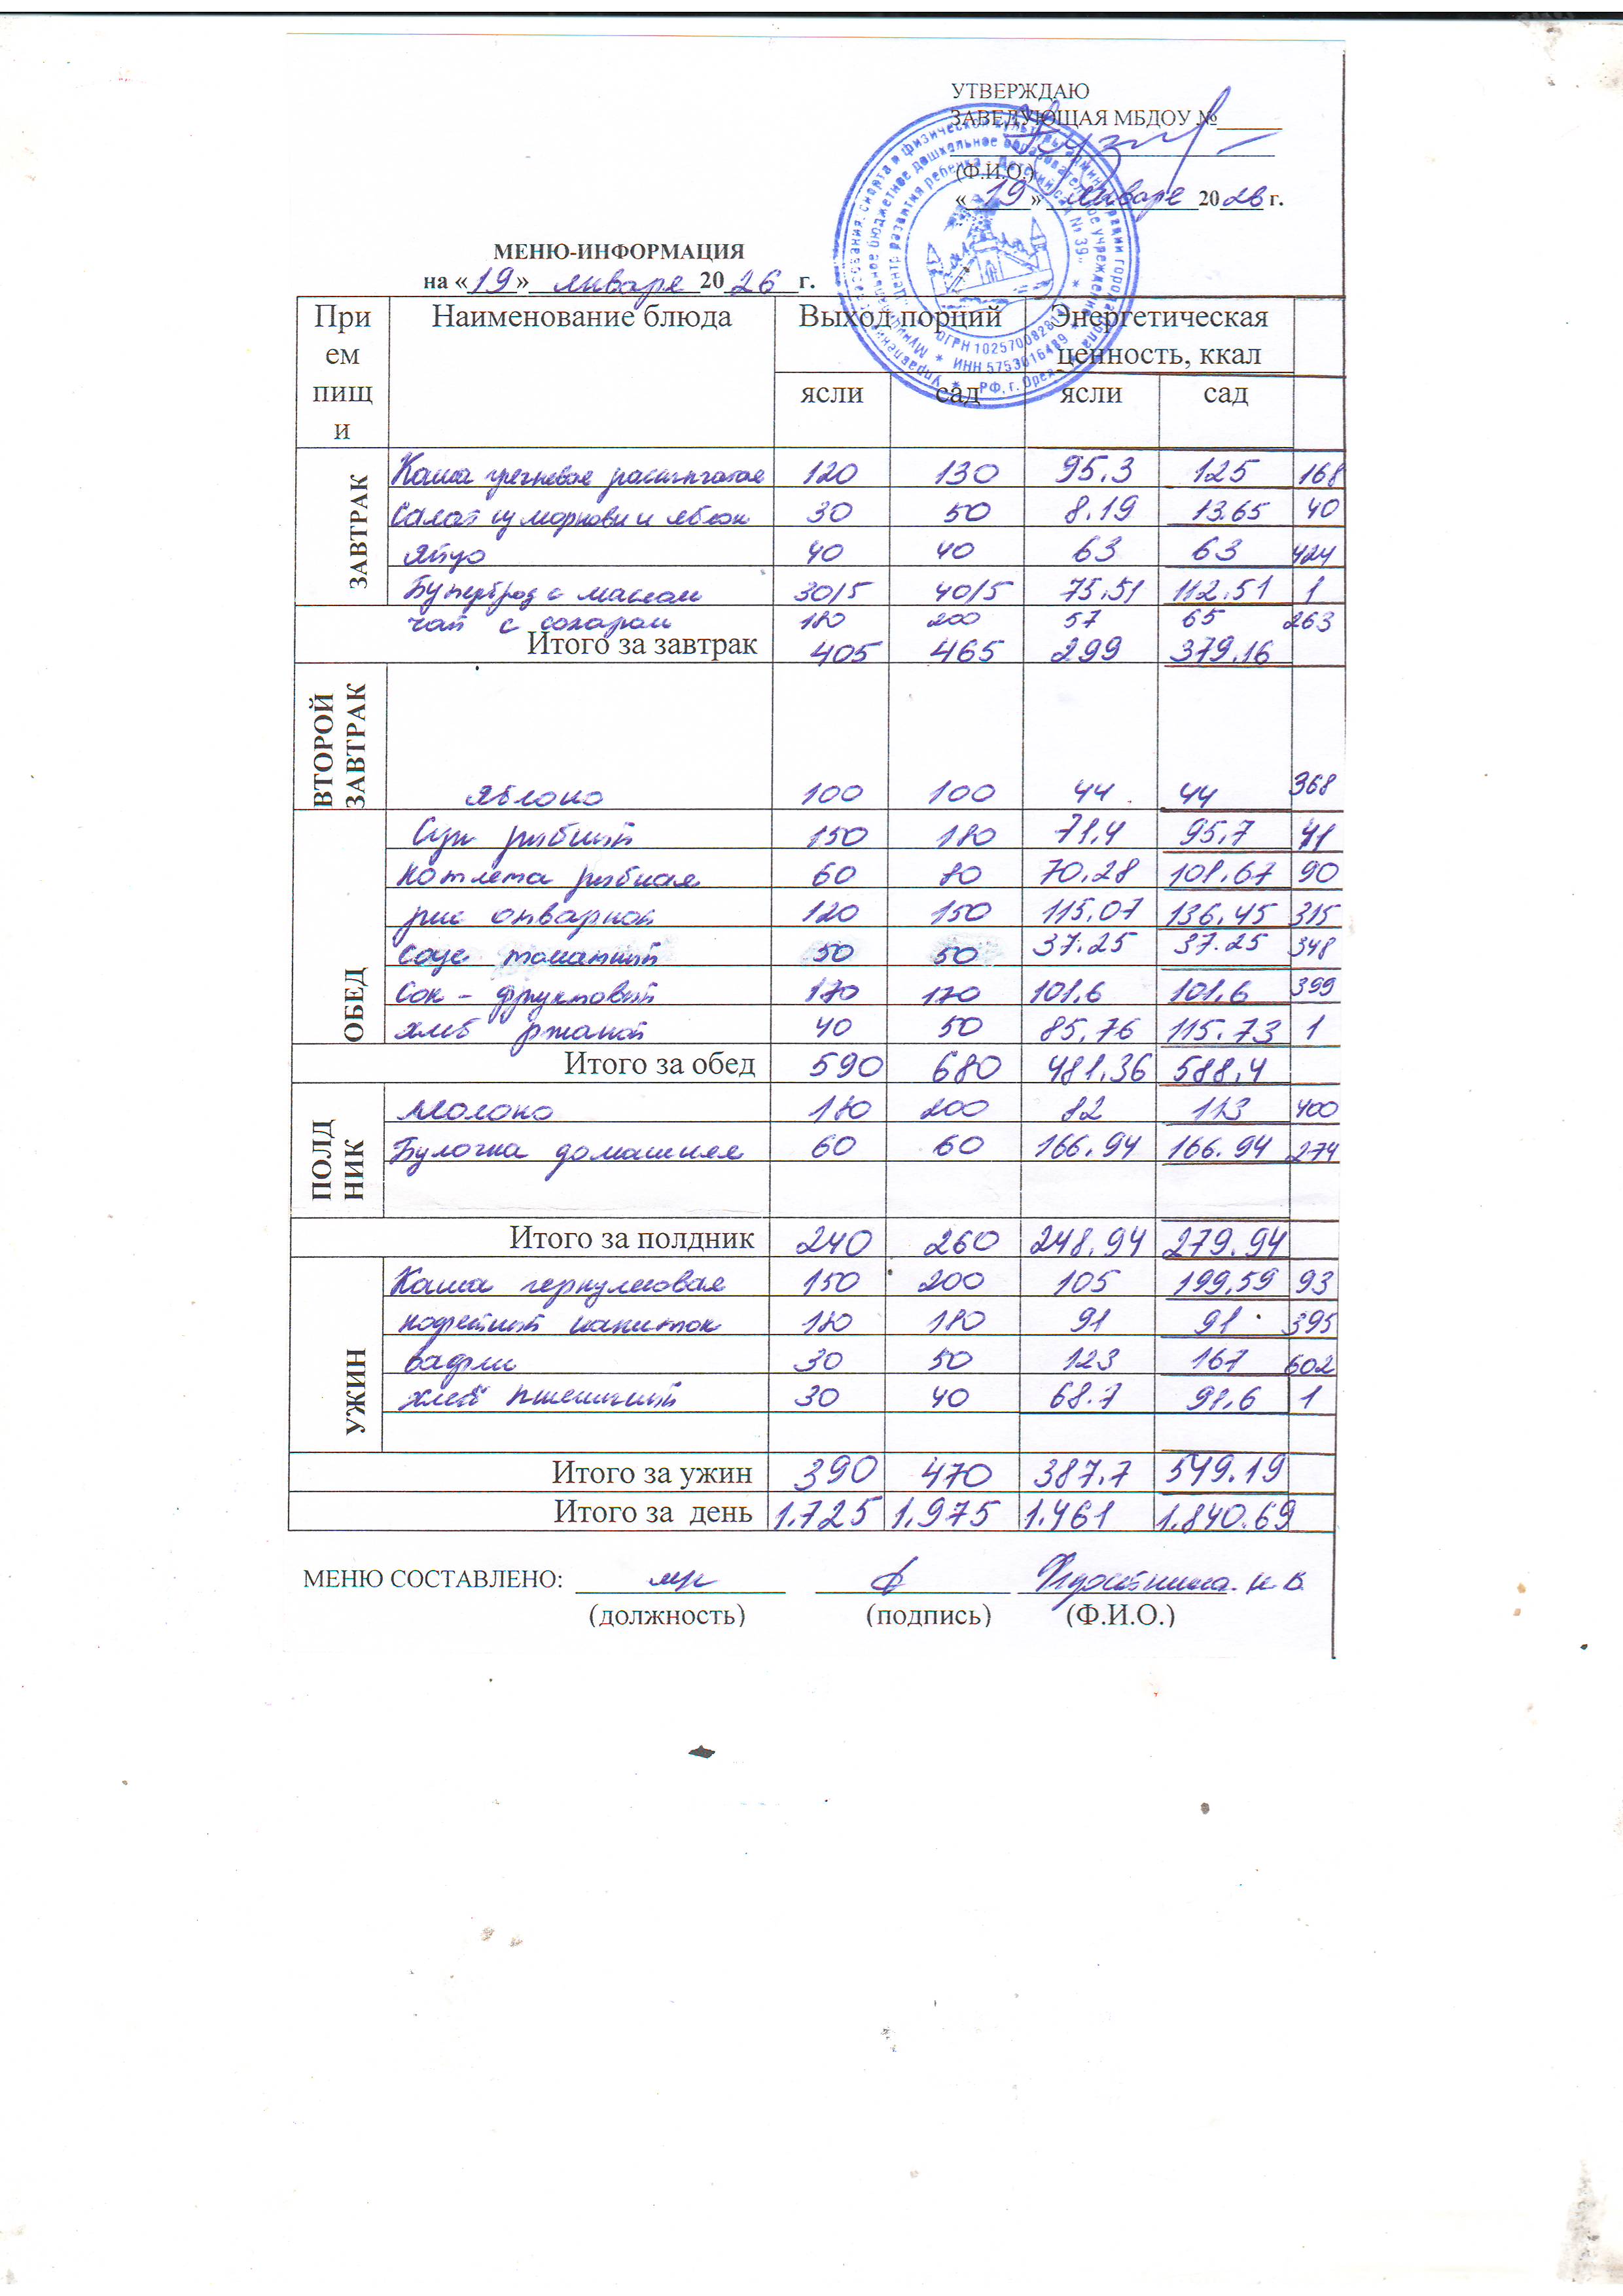 УТВЕРЖДАЮ
ЗАВЕДУЮЩАЯ МБДОУ №
(Ф.И.О.)
«19» января 2026 г.
Управление образования, спорта и физической культуры администрации города Орла
Муниципальное бюджетное дошкольное образовательное учреждение
"Центр развития ребенка - детский сад № 39"
ИНН 5753016489
РФ, г. Орел
МЕНЮ-ИНФОРМАЦИЯ
на «19» января 2026 г.
Прием пищи Наименование блюда Выход порций Энергетическая ценность, ккал
ясли сад ясли сад
ЗАВТРАК
Каша гречневая рассыпчатая 120 130 95.3 125 168
Салат из моркови и яблок 30 50 8.19 13.65 40
Яйцо 40 40 63 63 424
Бутерброд с маслом 30/5 40/5 75.51 112.51 1
чай с сахаром 180 200 57 65 263
Итого за завтрак 405 465 299 379.16
ВТОРОЙ ЗАВТРАК
Яблоко 100 100 44 44 368
ОБЕД
Суп рыбный 150 180 71,4 95,7 41
Котлета рыбная 60 80 70,28 108,67 90
рис отварной 120 150 115,07 136,45 315
Соус томатный 50 50 37.25 37.25 348
Сок - фруктовый 170 170 101,6 101,6 399
хлеб ржаной 40 50 85,76 115.73 1
Итого за обед 590 680 481.36 588,4
ПОЛДНИК
Молоко 180 200 82 113 400
Булочка домашняя 60 60 166.94 166.94 274
Итого за полдник 240 260 248.94 279.94
УЖИН
Каша геркулесовая 150 200 105 199,59 93
кофейный напиток 180 180 91 91 395
вафли 30 50 123 167 602
хлеб пшеничный 30 40 68.7 91,6 1
Итого за ужин 390 470 387.7 549.19
Итого за день 1.725 1.975 1.461 1.840.69
МЕНЮ СОСТАВЛЕНО:
(должность) (подпись) (Ф.И.О.)